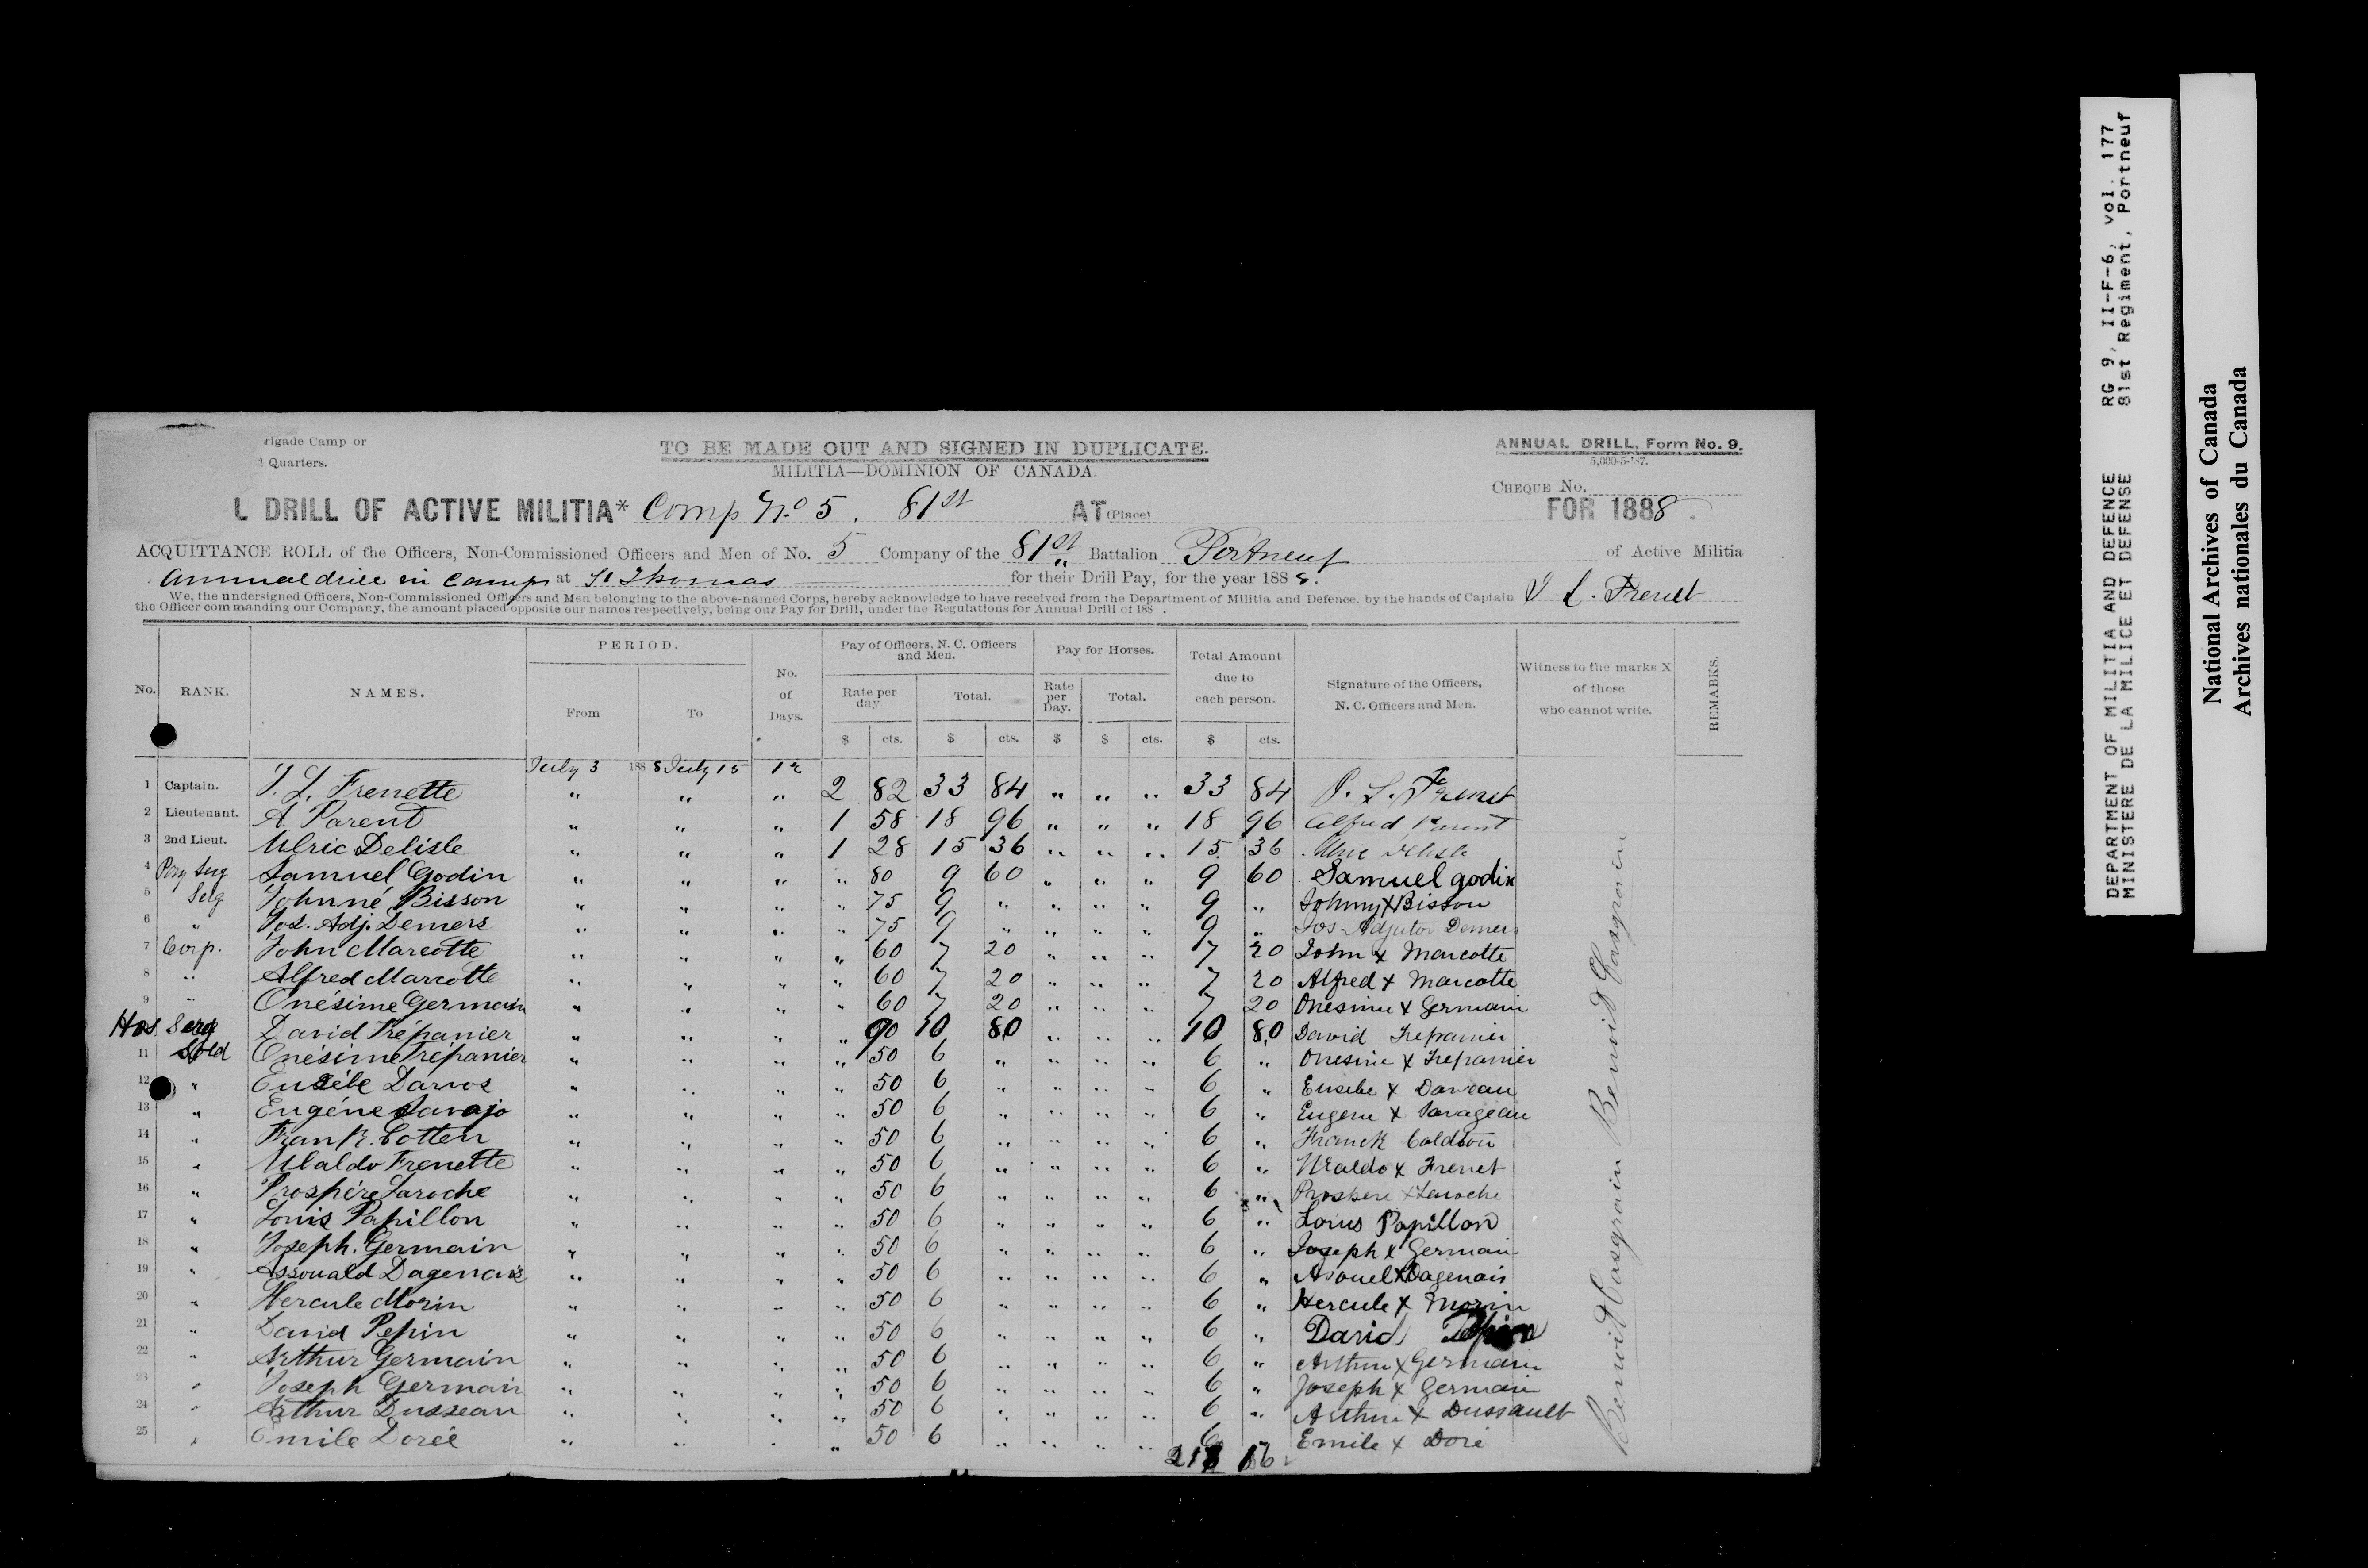 rigade Camp or
Quarters.
TO BE MADE OUT AND SIGNED IN DUPLICATE.
MILITIA—DOMINION OF CANADA.
ANNUAL DRILL, Form No. 9.
5,000-5-'87.
CHEQUE No.
L DRILL OF ACTIVE MILITIA* Comp No 5. 81st AT (Place) FOR 1888.
ACQUITTANCE ROLL of the Officers, Non-Commissioned Officers and Men of No. 5 Company of the 81st Battalion Portneuf of Active Militia
Annual drill in Camp at St Thomas for their Drill Pay, for the year 1888.
We, the undersigned Officers, Non-Commissioned Officers and Men belonging to the above-named Corps, hereby acknowledge to have received from the Department of Militia and Defence. by the hands of Captain L. Frenet
the Officer commanding our Company, the amount placed opposite our names respectively, being our Pay for Drill, under the Regulations for Annual Drill of 188 .
No. RANK. NAMES. PERIOD. From To No. of Days. Pay of Officers, N. C. Officers and Men. Rate per day Total. Pay for Horses. Rate per Day. Total. Total Amount due to each person. Signature of the Officers, N. C. Officers and Men. Witness to the marks X of those who cannot write. REMARKS.
$ cts. $ cts. $ $ cts. $ cts.
July 3 1888 July 15 12
1 Captain. Frenette " " " 2 82 33 84 " " " 33 84 P. L. Frenet
2 Lieutenant. A Parent " " " 1 58 18 96 " " " 18 96 Alfred Parent
3 2nd Lieut. Ulric Delisle " " " 1 28 15 36 " " " 15 36 Ulric Delisle
4 Pay Serg Samuel Godin " " " " 80 9 60 " " " 9 60 Samuel godin
5 Serg Johnné Bisson " " " " 75 9 " " " " 9 " Johnny X Bisson
6 " Jos. Adj. Demers " " " " 75 9 " " " " 9 " Jos-Adjutor Demers
7 Corp. John Marcotte " " " " 60 7 20 " " " 7 20 John x Marcotte
8 " Alfred Marcotte " " " " 60 7 20 " " " 7 20 Alfred x Marcotte
9 " Onésime Germain " " " " 60 7 20 " " " 7 20 Onesime x Germain
Hos. Serg David Trépanier " " " " 90 10 80 " " " 10 80 David Trepanier
11 Sold Onésime Trépanier " " " " 50 6 " " " " 6 " Onesime x Trepanier
12 " Eusèbe Darvos " " " " 50 6 " " " " 6 " Eusebe x Darveau
13 " Eugéne Savajo " " " " 50 6 " " " " 6 " Eugene x Savageau
14 " Frank. Cotten " " " " 50 6 " " " " 6 " Franck Coldton
15 " Ubaldo Frenette " " " " 50 6 " " " " 6 " Ubaldo x Frenet
16 " Prospére Laroche " " " " 50 6 " " " " 6 " Prospere x Laroche
17 " Louis Papillon " " " " 50 6 " " " " 6 " Louis Papillon
18 " Joseph. Germain " " " " 50 6 " " " " 6 " Joseph x Germain
19 " Assouald Dagenais " " " " 50 6 " " " " 6 " Asouel x Dagenais
20 " Hercule Morin " " " " 50 6 " " " " 6 " Hercule x Morin
21 " David Pepin " " " " 50 6 " " " " 6 " David Pepin
22 " Arthur Germain " " " " 50 6 " " " " 6 " Arthur x Germain
23 " Joseph Germain " " " " 50 6 " " " " 6 " Joseph x Germain
24 " Arthur Dusseau " " " " 50 6 " " " " 6 " Arthur x Dussault
25 " Emile Dorée " " " " 50 6 " " " " 6 " Emile x Doré
Benoit Casgrain Benoit Casgrain
DEPARTMENT OF MILITIA AND DEFENCE RG 9, II-F-6, vol. 177
MINISTERE DE LA MILICE ET DEFENSE 81st Regiment, Portneuf
National Archives of Canada
Archives nationales du Canada